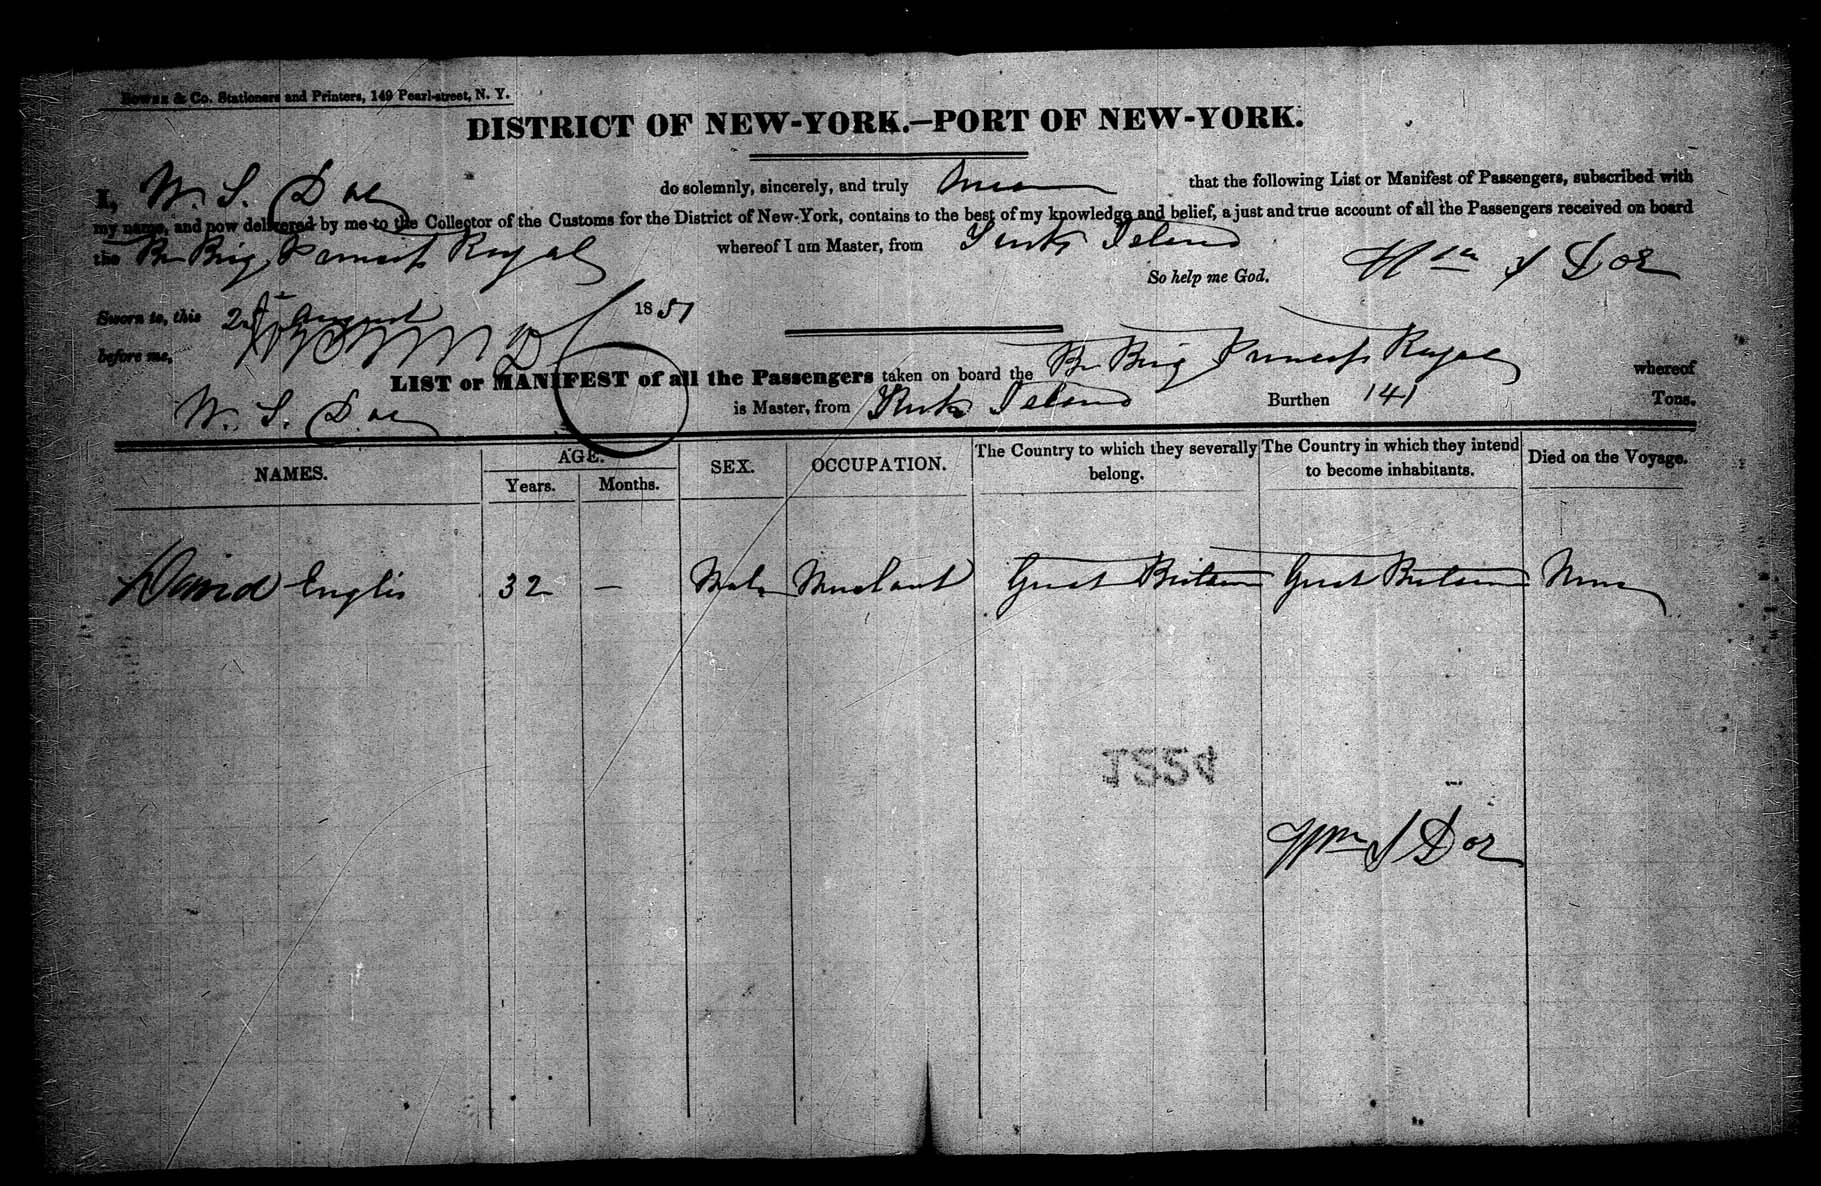 Bowne & Co. Stationers and Printers, 149 Pearl-street, N. Y.
DISTRICT OF NEW-YORK.—PORT OF NEW-YORK.
I, W. S. Doe do solemnly, sincerely, and truly Swear that the following List or Manifest of Passengers, subscribed with
my name, and now delivered by me to the Collector of the Customs for the District of New-York, contains to the best of my knowledge and belief, a just and true account of all the Passengers received on board
the Br Brig Princess Royal whereof I am Master, from Turks Island
So help me God. Wm S Doe
Sworn to, this August 1851
before me,
LIST or MANIFEST of all the Passengers taken on board the Br Brig Princess Royal whereof
W. S. Doe is Master, from Turks Island Burthen 141 Tons.
NAMES. AGE. Years. Months. SEX. OCCUPATION. The Country to which they severally belong. The Country in which they intend to become inhabitants. Died on the Voyage.
David Englis 32 — Male Merchant Great Britain Great Britain None
1224
Wm S Doe